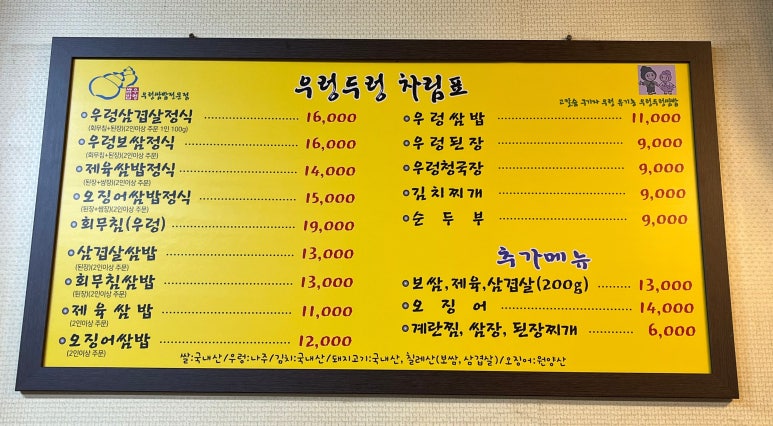 우렁두렁 차림표
우렁쌈밥전문점
우렁삼겹살정식 16,000
(회무침+된장)(2인이상 주문 1인 100g)
우렁보쌈정식 16,000
(회무침+된장)(2인이상 주문)
제육쌈밥정식 14,000
(된장+쌈장)(2인이상 주문)
오징어쌈밥정식 15,000
(된장+쌈장)(2인이상 주문)
회무침(우렁) 19,000
삼겹살쌈밥 13,000
(된장)(2인이상 주문)
회무침쌈밥 13,000
(된장)(2인이상 주문)
제육쌈밥 11,000
(2인이상 주문)
오징어쌈밥 12,000
(2인이상 주문)
우렁쌈밥 11,000
우렁된장 9,000
우렁청국장 9,000
김치찌개 9,000
순두부 9,000
추가메뉴
보쌈,제육,삼겹살(200g) 13,000
오징어 14,000
계란찜, 쌈장, 된장찌개 6,000
쌀:국내산/우렁:나주/김치:국내산/돼지고기:국내산, 칠레산(보쌈, 삼겹살)/오징어:원양산